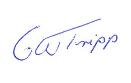 G W Tripp